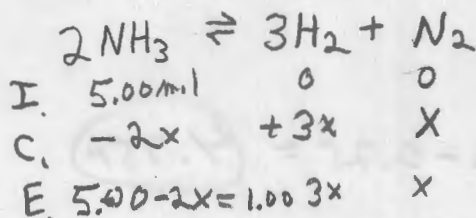 2NH₃ ⇌ 3H₂ + N₂
I. 5.00m.l 0 0
C. -2x +3x x
E. 5.00-2x=1.00 3x x